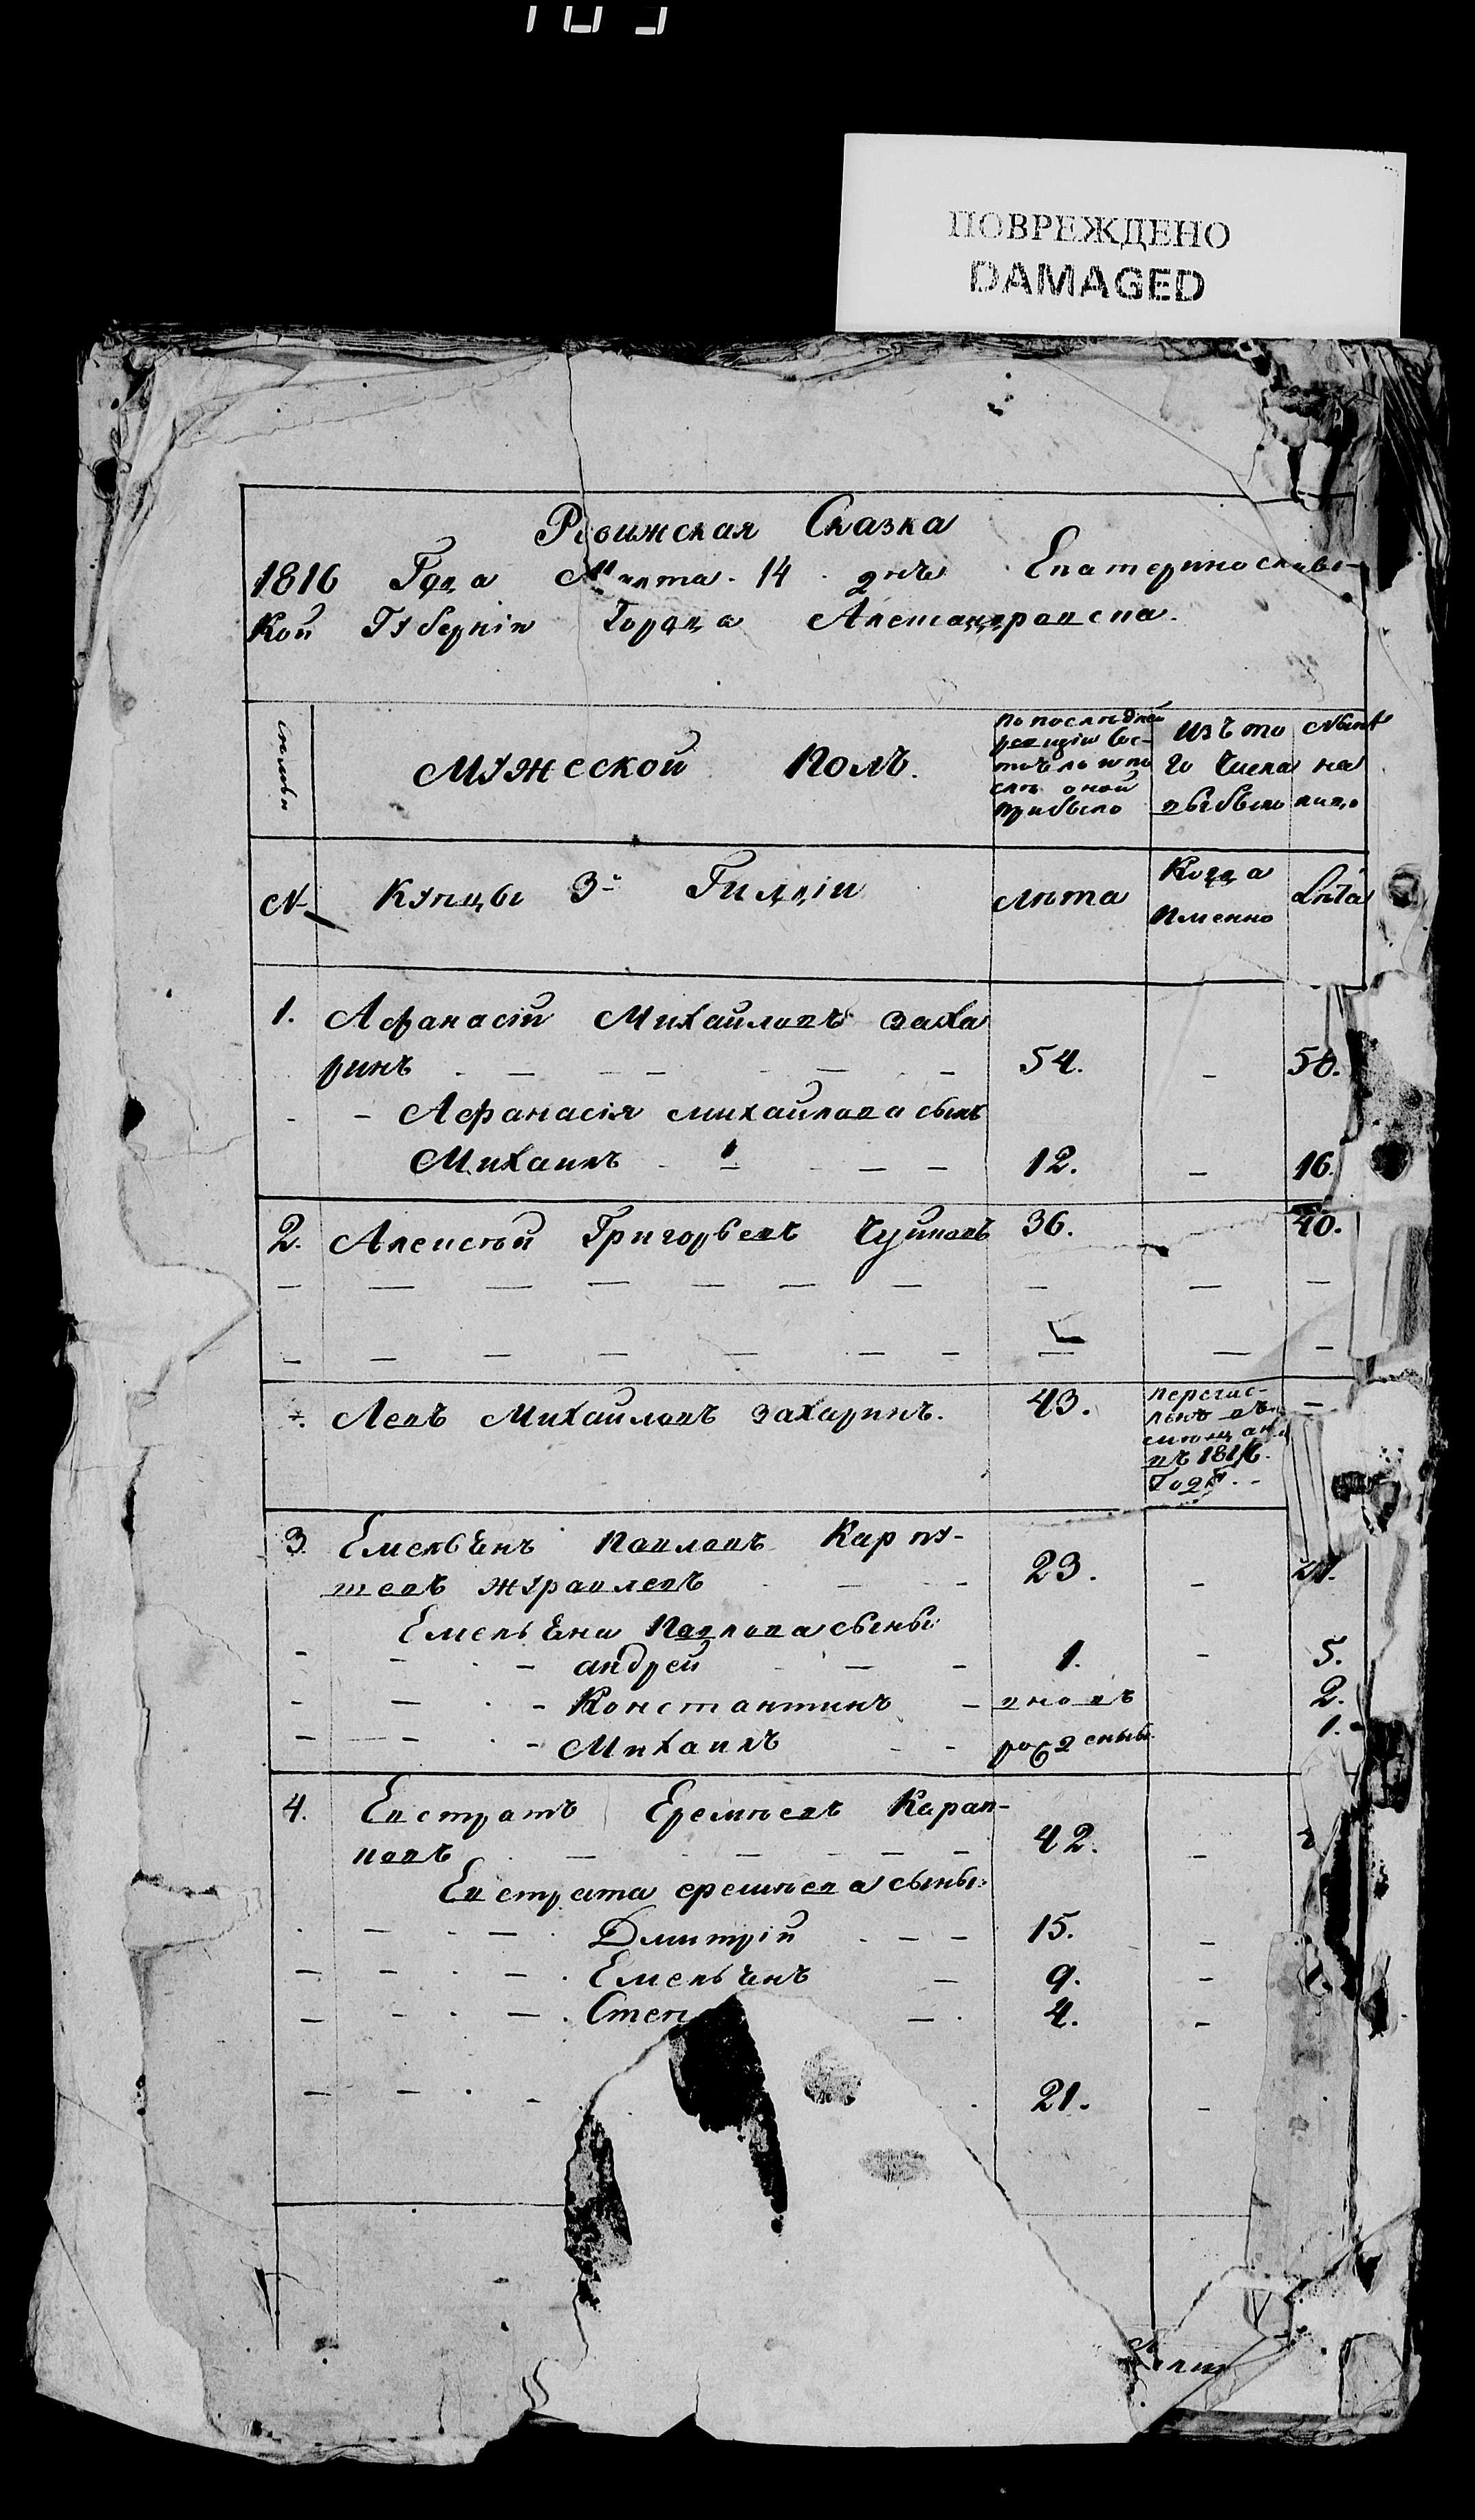 ПОВРЕЖДЕНО
DAMAGED
Ревижская Сказка
1816 Года Марта 14 днѣ Екатеринославс-
кой Губернiи Города Александровска.
семьи
Мужеской полъ.
по последней
ревизiи сос-
тоѣло и по
слѣ оной
прибыло
Изъ то
го Числа
выбыло
Нынѣ
на
лицо
№ Купцы 3й Гилдiи Лѣта Когда
Именно Лѣта
1. Афанасiй Михайловъ Заха
ринъ 54. - 58.
Афанасiя Михайлова сынъ
Михаилъ 12. - 16.
2. Алексѣй Григорьевъ Чуйковъ 36. 40.
Левъ Михайловъ Захаринъ. 43. перечис-
ленъ въ
смѣщан
въ 1814.
Году -
3. Емельѣнъ Павловъ Карпу-
шевъ Журавлевъ 23. -
Емельѣна Павлова сыны
андрей 1. - 5.
Константинъ вновь 2.
Михаилъ рожденны 1.
4. Евстратъ Еремѣевъ Карап-
новъ 42. -
Евстрата еремѣева сыны
Дмитрiй 15. -
Емельѣнъ 9. -
Степ 4. -
21. -